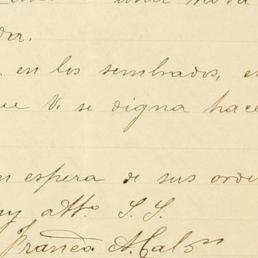 da.
en los sembrados, e
ue V. se digna hace
n espera de sus orde
uy atto. S. S.
Franco A. Cal